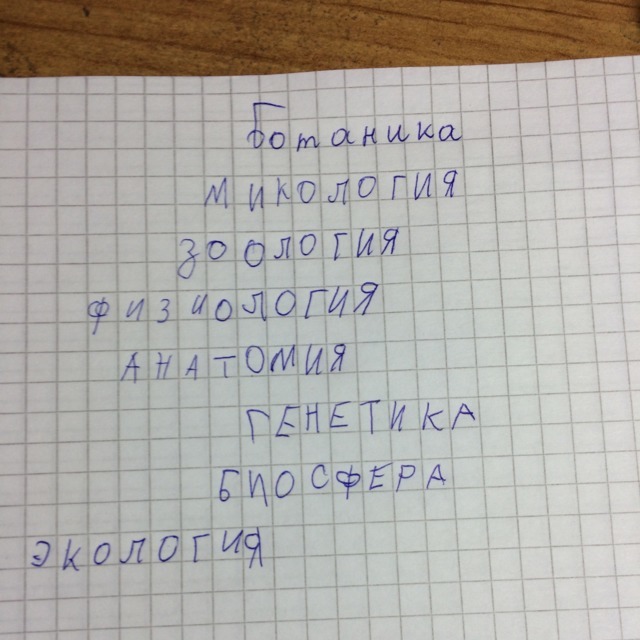 Ботаника
МИКОЛОГИЯ
ЗООЛОГИЯ
ФИЗИОЛОГИЯ
АНАТОМИЯ
ГЕНЕТИКА
БИОСФЕРА
ЭКОЛОГИЯ